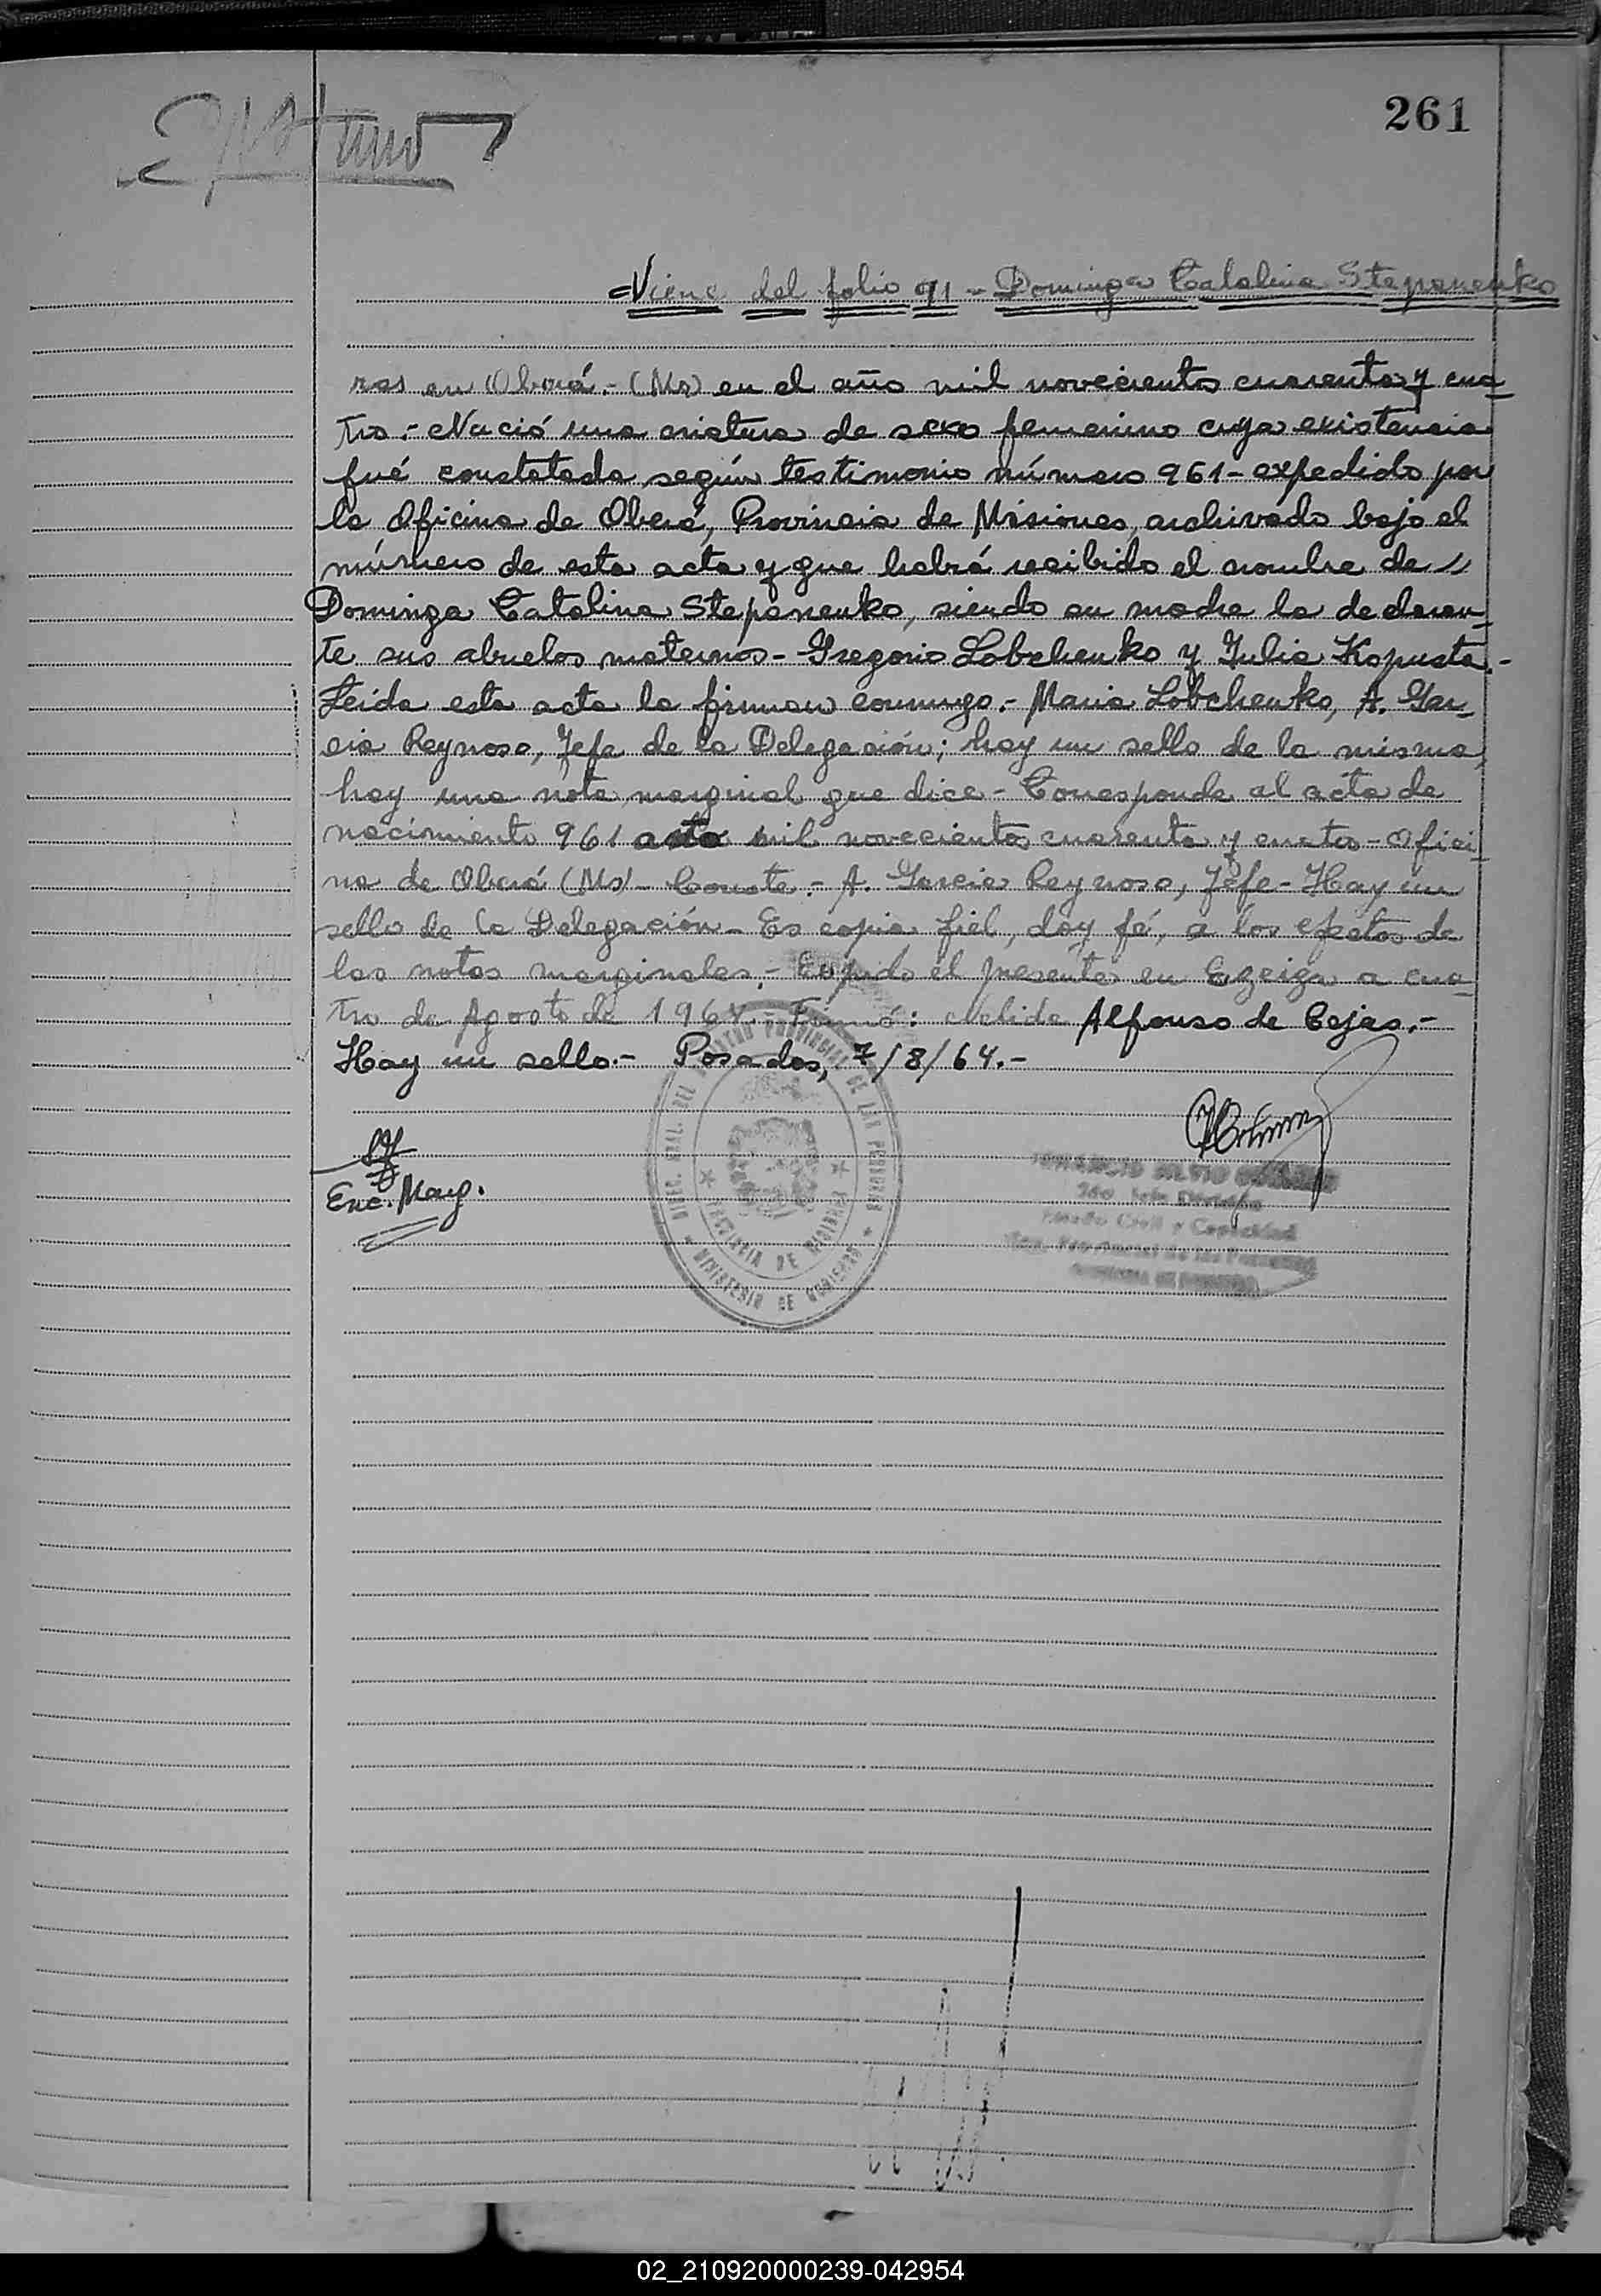 261
Viene del folio 91 - Dominga Catalina Stepanenko
ras en Oberá.- (Ms) en el año mil novecientos cuarenta y cua-
tro.- Nació una criatura de sexo femenino cuya existencia
fué constatada según testimonio número 961 - expedido por
la Oficina de Oberá, Provincia de Misiones, archivado bajo el
número de esta acta y que habrá recibido el nombre de //
Dominga Catalina Stepanenko, siendo su madre la declaran-
te sus abuelos maternos - Gregorio Lobchenko y Julia Kopusta.-
Leida esta acta la firman conmigo.- Maria Lobchenko, A. Gar-
cia Reynoso, Jefa de la Delegación; hay un sello de la misma,
hay una nota marginal que dice - Corresponde al acta de
nacimiento 961 mil novecientos cuarenta y cuatro - Ofici-
na de Oberá (Ms) - Conste.- A. Garcia Reynoso, Jefe - Hay un
sello de la Delegación - Es copia fiel, doy fé, a los efectos de
las notas marginales.- Expido el presente en Ezeiza a cua-
tro de Agosto de 1964.- Firmó: Nelida Alfonso de Cejas.-
Hay un sello.- Posadas, 7/8/64.-
Enc. Marg.
DIREC. GRAL. DEL REGISTRO PROVINCIAL DE LAS PERSONAS
MINISTERIO DE GOBIERNO
PROVINCIA DE MISIONES
Estado Civil y Capacidad
02_210920000239-042954